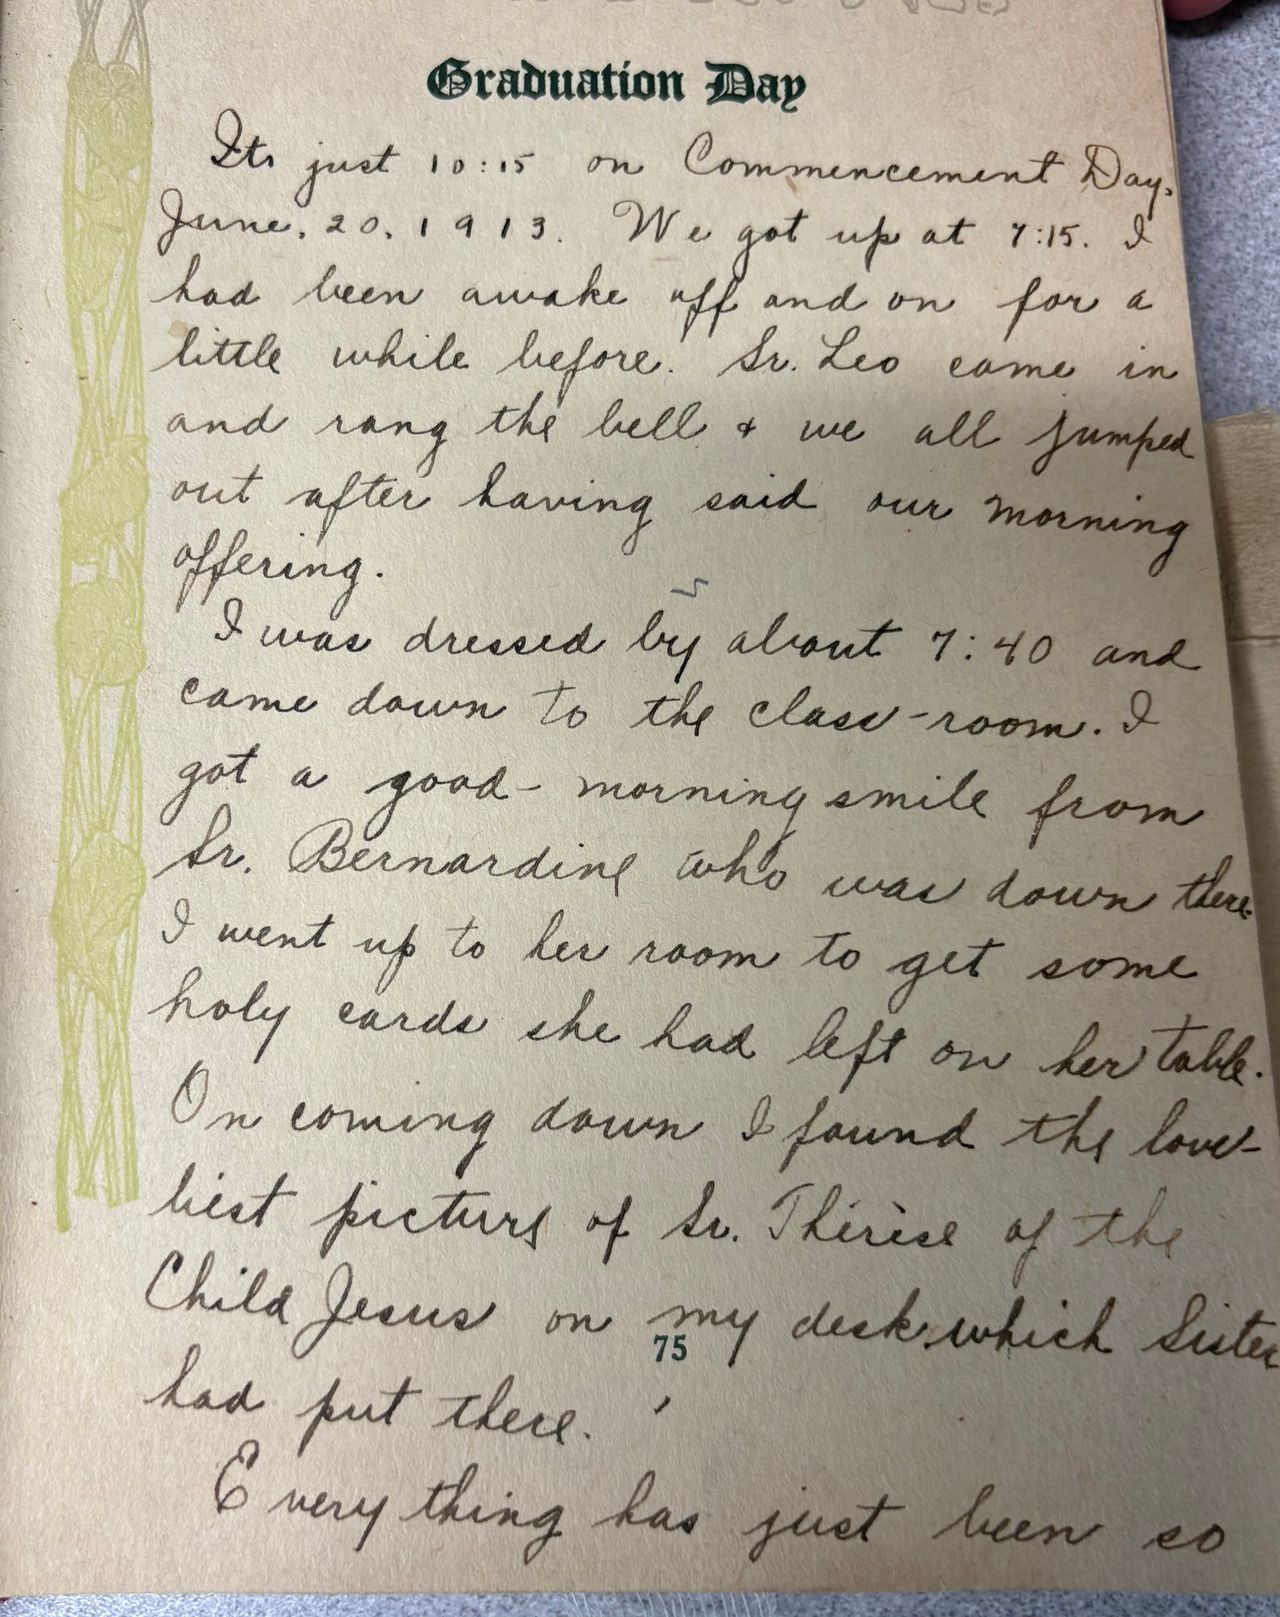 Graduation Day
Its just 10:15 on Commencement Day,
June. 20. 1913. We got up at 7:15. I
had been awake off and on for a
little while before. Sr. Leo came in
and rang the bell & we all jumped
out after having said our morning
offering.
I was dressed by about 7:40 and
came down to the class-room. I
got a good-morning smile from
Sr. Bernardine who was down there.
I went up to her room to get some
holy cards she had left on her table.
On coming down I found the love-
liest picture of Sr. Thérèse of the
Child Jesus on my desk which Sister
75
had put there.
Everything has just been so